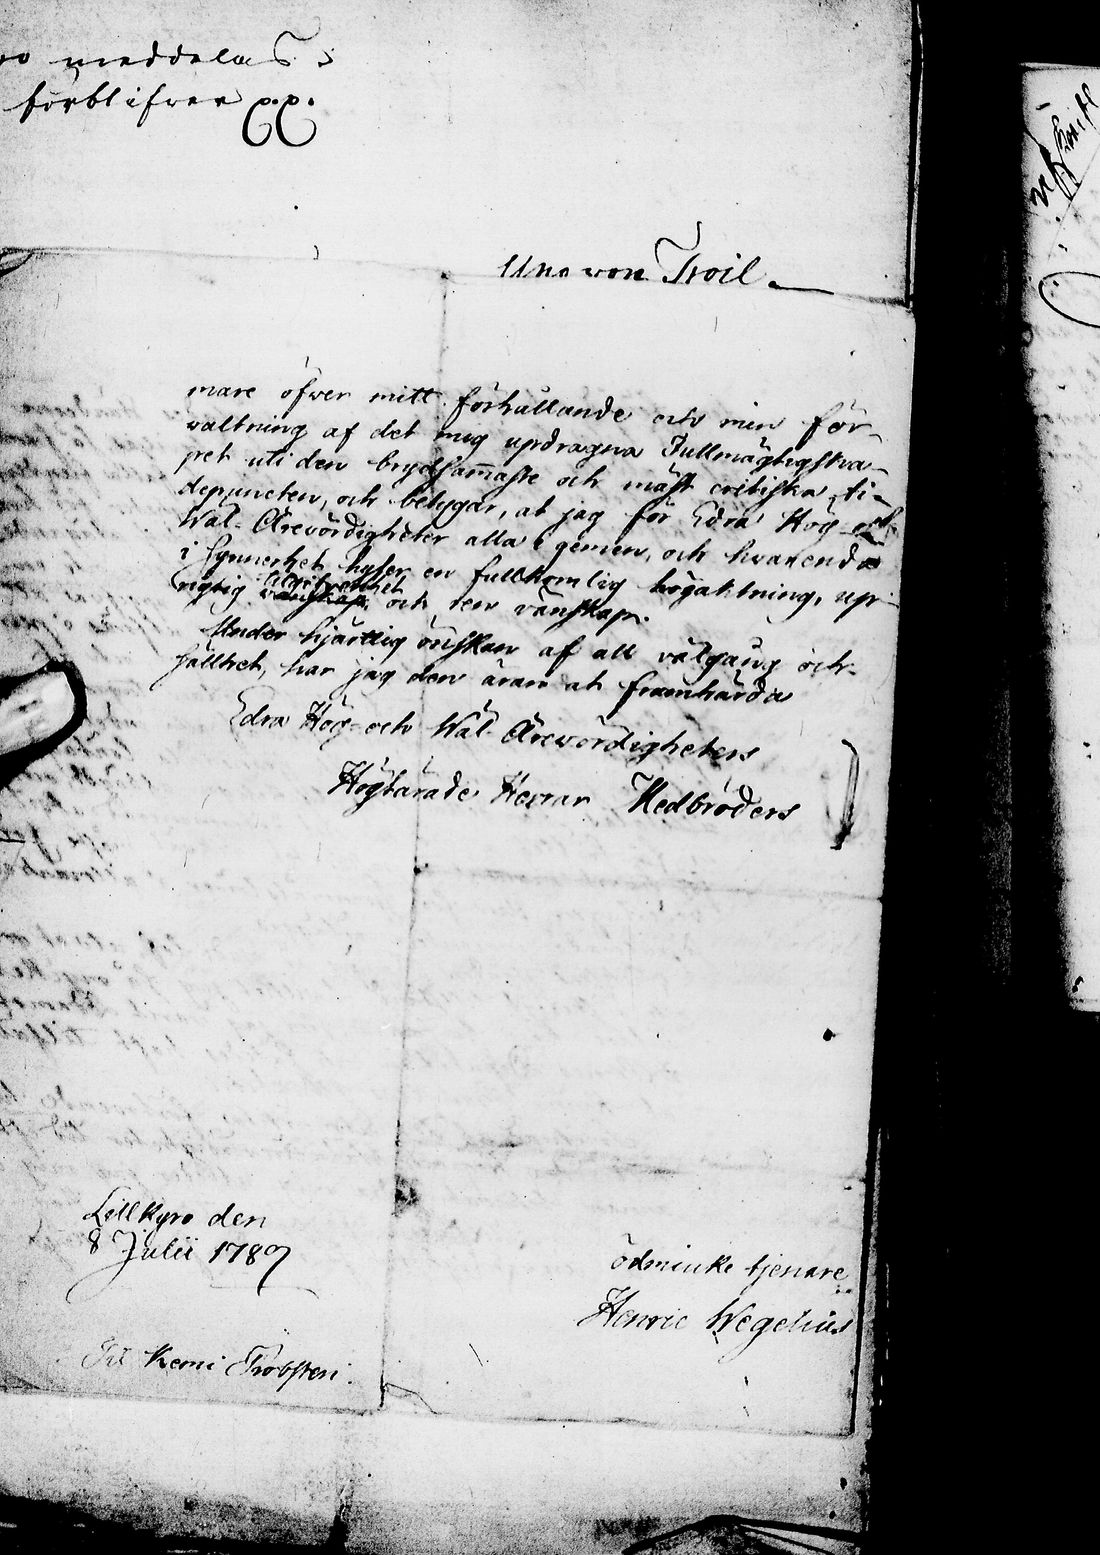 meddelas
förblifver
Uno von Troil
mare öfver mitt förhållande och min för-
valtning af det mig updragna Fullmägtigska-
pet uti den brydsammaste och mäst critiska ti-
depuncten, och betygar, at jag för Edra Hög och
Wäl-Ärevördigheter alla i gemen, och hvarenda
i synnerhet hyser en fullkomlig högaktning, up-
rigtig vänskap och ren vänskap.
Under hjärtlig önskan af all välgång och
sällhet, har jag den äran at framhärda
Edra Hög- och Wäl-Ärevördigheters
Högtärade Herrar Medbröders
Lillkyro den
8 Julii 1789
ödmiuke tjenare
Henric Wegelius
Til Kemi Probsteri.